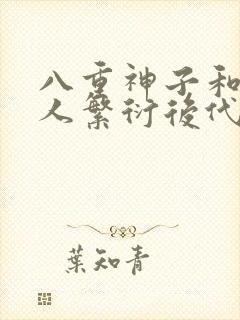 八重神子和
人繁衍後代
葉知青